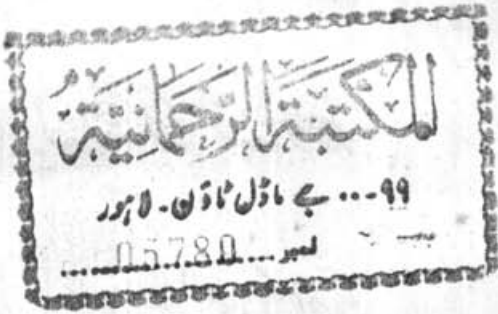 المكتبة الرحمانية
۹۹... جے ماڈل ٹاؤن۔ لاہور
نمبر...05780...